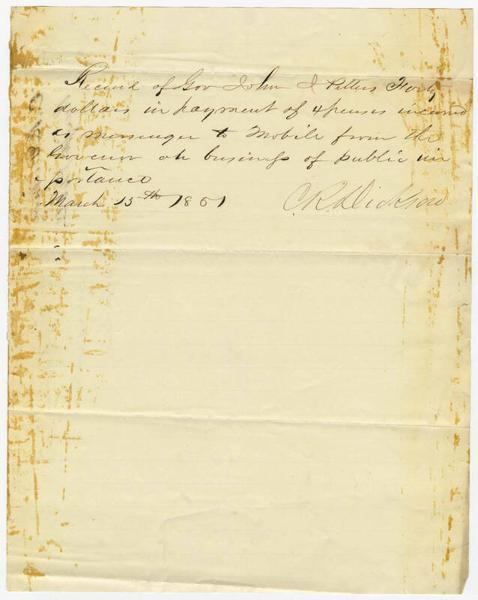 Received of Gov John J Pettus Forty
dollars in payment of expenses incured
as messenger to Mobile from the
Governor on business of public im
portance
March 15th 1861 C. R. Dickson